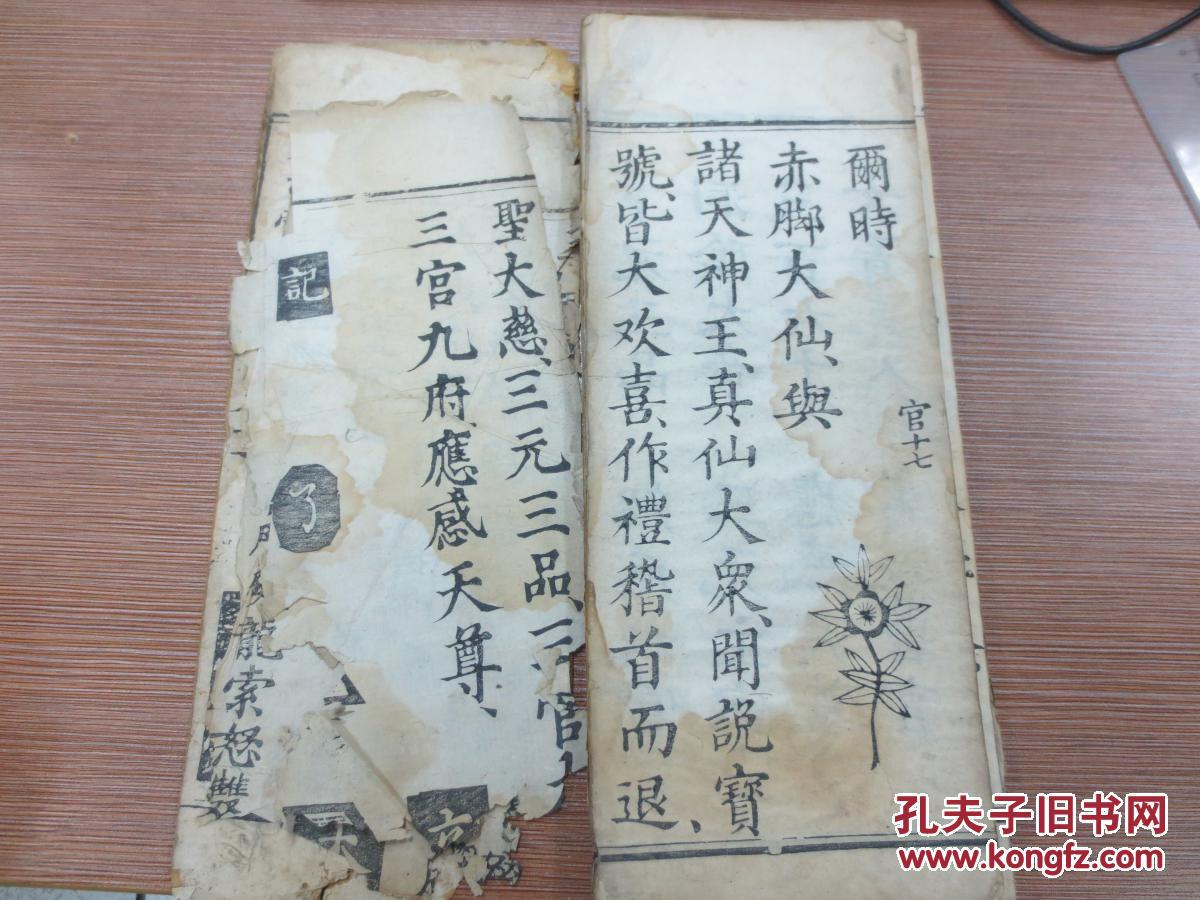 爾時
赤脚大仙、與
諸天神王、真仙大衆、聞説寶
號、皆大欢喜、作禮稽首而退、
官十七
聖大慈、三元三品、三官
三宫九府應感天尊、
記
了
龍索怒雙
孔夫子旧书网
www.kongfz.com